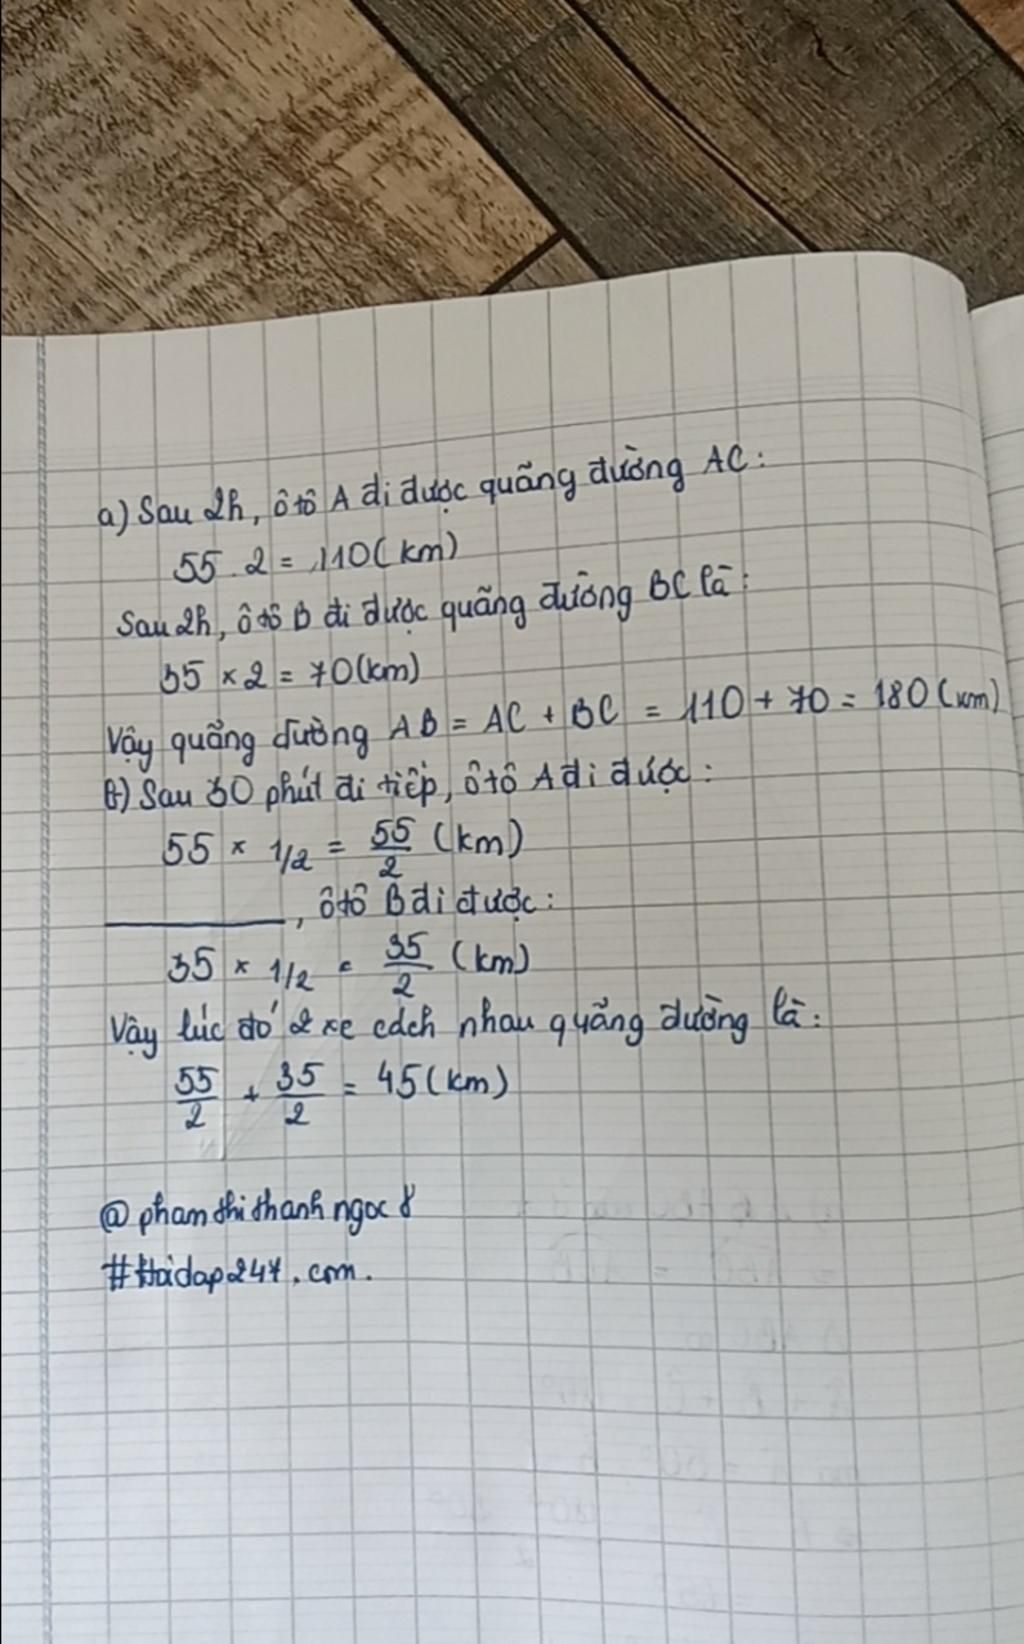 a) Sau 2h, ô tô A đi được quãng đường AC:
55 . 2 = 110 (km)
Sau 2h, ô tô B đi được quãng đường BC là:
35 × 2 = 70 (km)
Vậy quãng đường AB = AC + BC = 110 + 70 = 180 (km)
b) Sau 30 phút đi tiếp, ô tô A đi được:
55 × 1/2 = 55/2 (km)
________, ô tô B đi được:
35 × 1/2 = 35/2 (km)
Vậy lúc đó 2 xe cách nhau quãng đường là:
55/2 + 35/2 = 45 (km)
@phamthithanhngoc8
#Hoidap247.com.